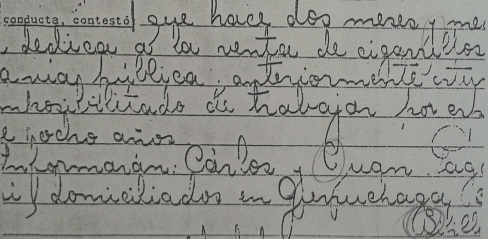 conducta, contestó que hace dos meses y me
dedica a la venta de cigarrillos
pública anteriormente estu
mposibilitado de trabajar por es
e ocho años
Informarán: Carlos y Juan
domiciliados en